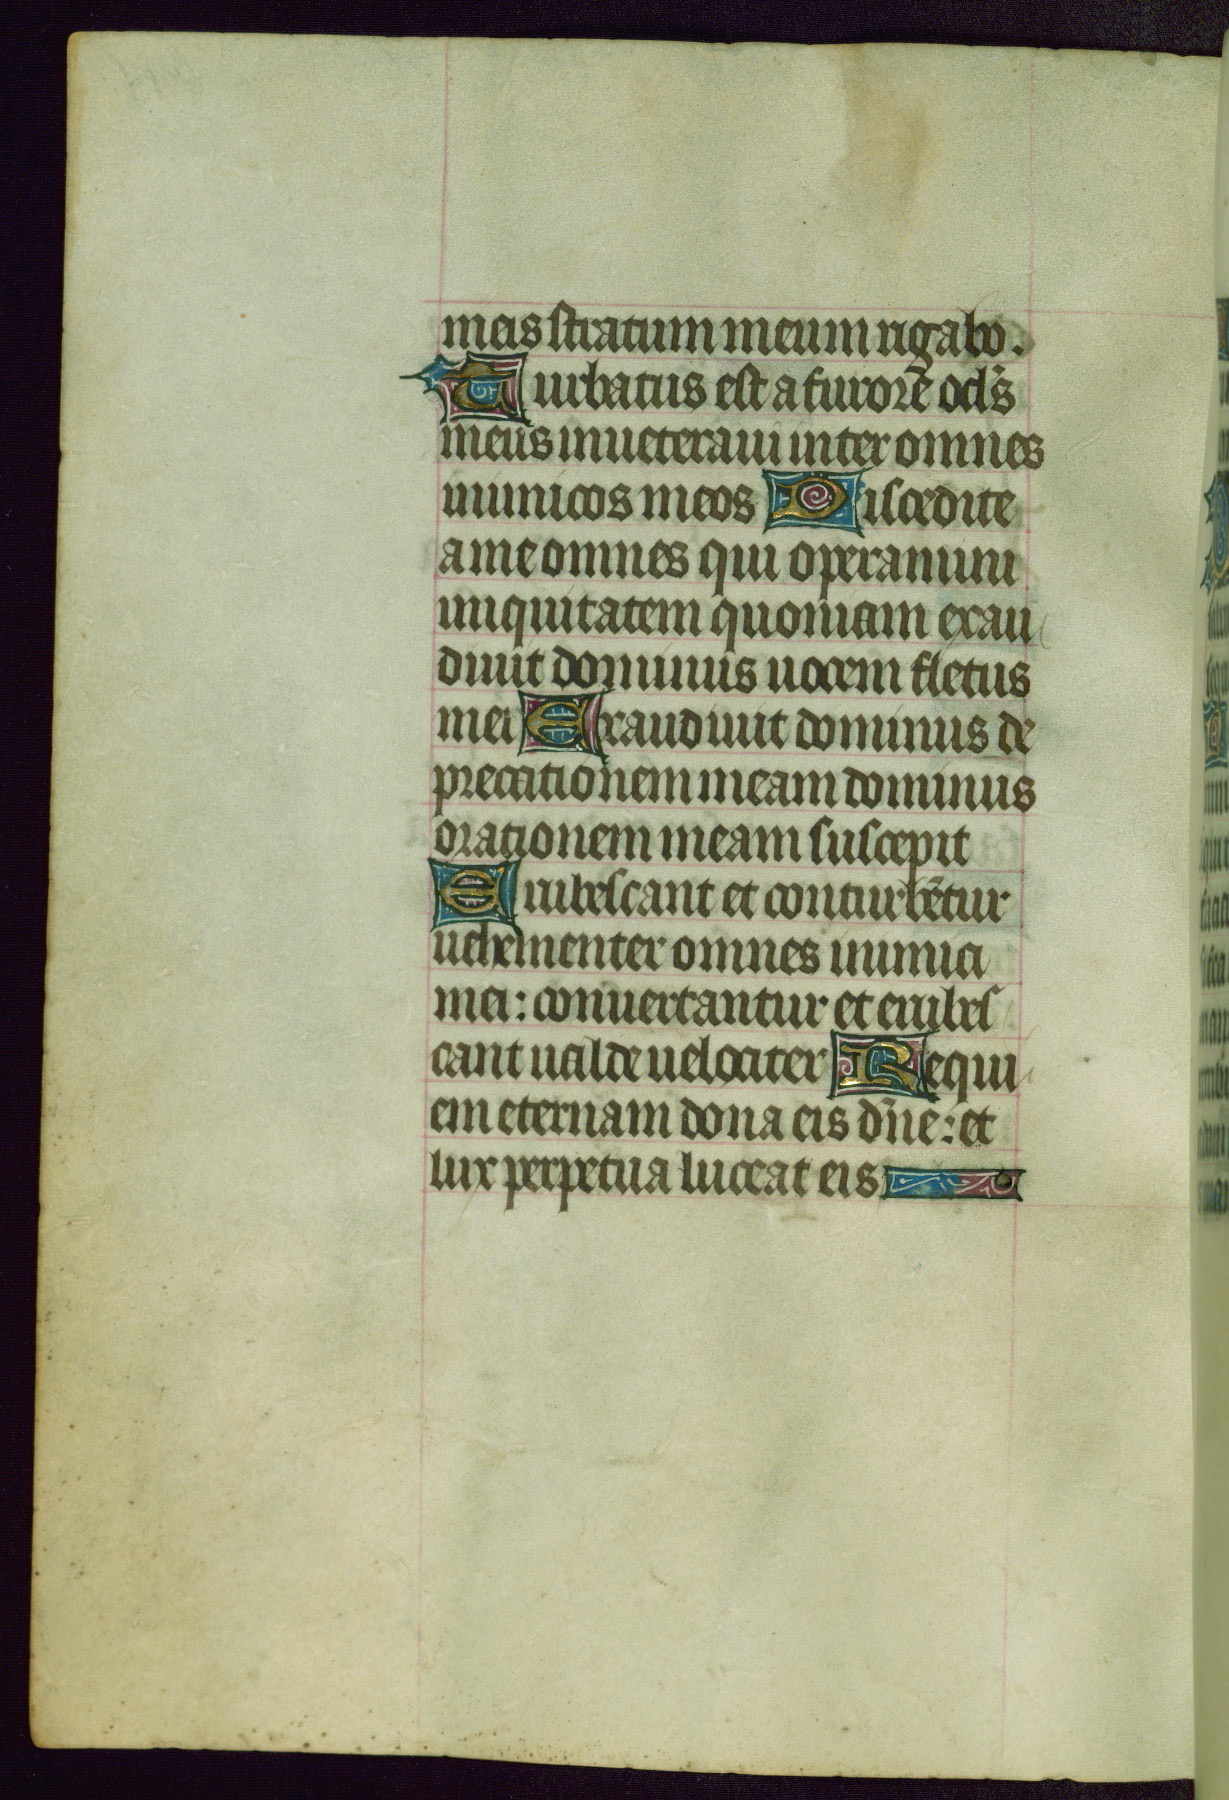 meis stratum meum rigabo.
Turbatus est a furorē ocl's
meus inueteraui inter omnes
inimicos meos Discedite
a me omnes qui operamini
iniquitatem quoniam exau
diuit dominus uocem fletus
mei Exaudiuit dominus de
precationem meam dominus
orationem meam suscepit
Erubescant et conturbētur
uehementer omnes inimici
mei: conuertantur et erubes
cant ualde uelociter Requi
em eternam dona eis dn̄e: et
lux perpetua luceat eis